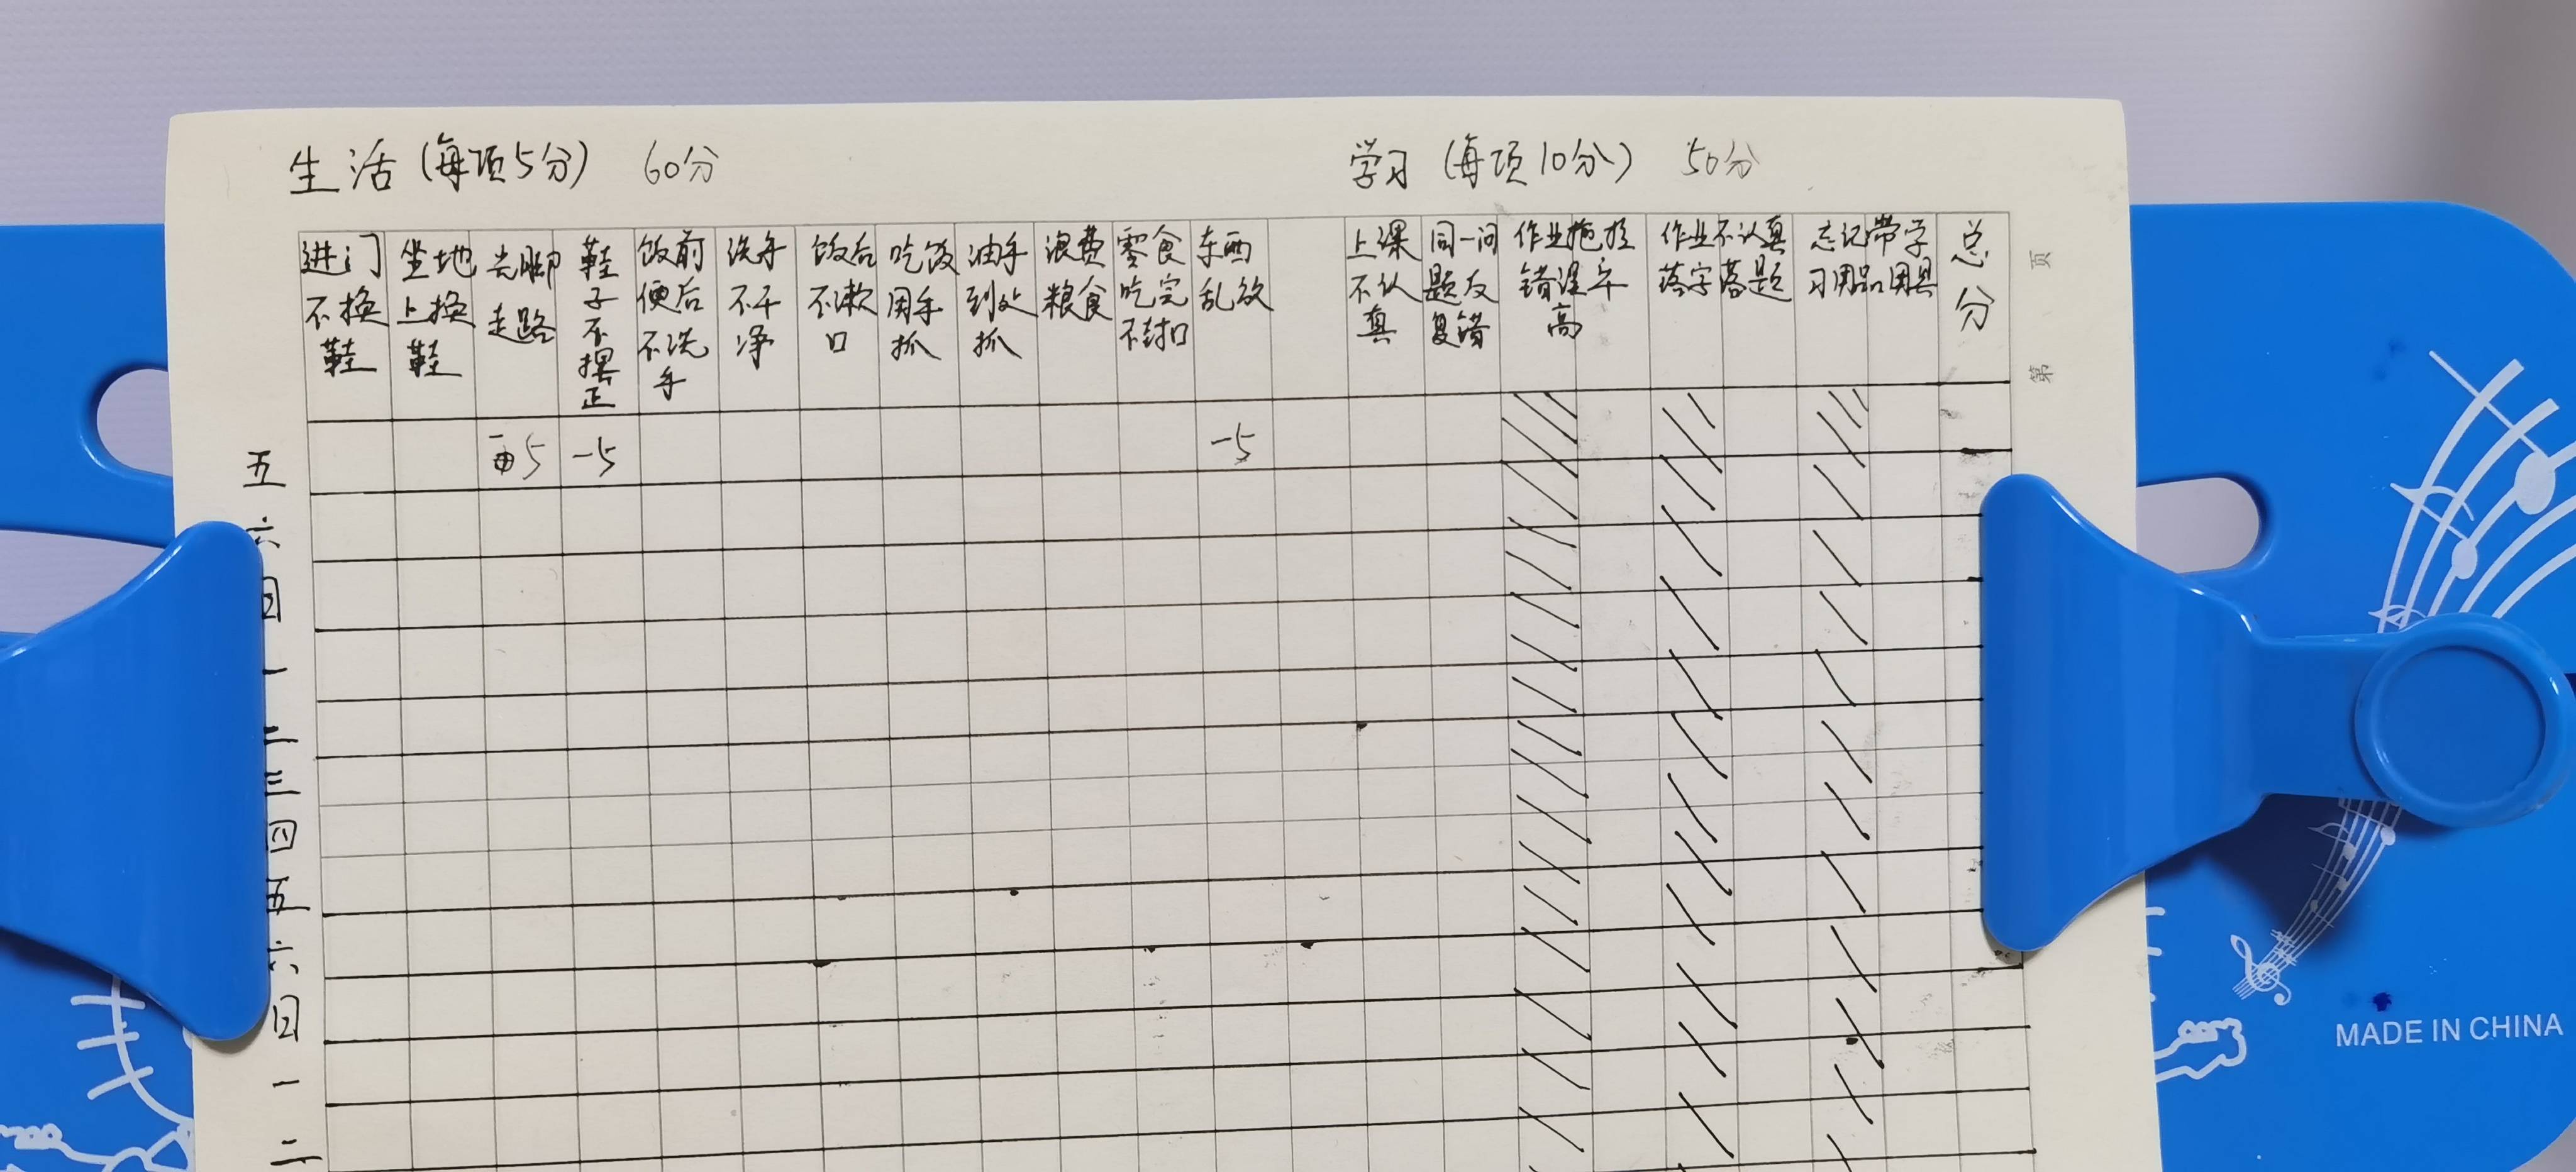 生活（每项5分） 60分
学习（每项10分） 50分
进门不换鞋
坐地上换鞋
光脚走路
鞋子不摆正
饭前便后不洗手
洗手不干净
饭后不漱口
吃饭用手抓
油手到处抓
浪费粮食
零食吃完不封口
东西乱放
上课不认真
同一问题反复错
作业拖拉错误率高
作业不认真落字落题
忘记带学习用品用具
总分
页
第
五 -5 -5 -5
六
日
一
二
三
四
五
六
日
一
二
MADE IN CHINA